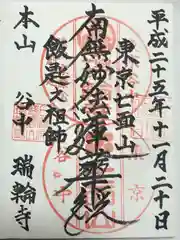 平成二十五年十一月二十日
東京七面山
南無妙法蓮華経
飯匙乃祖師
本山
谷中
瑞輪寺